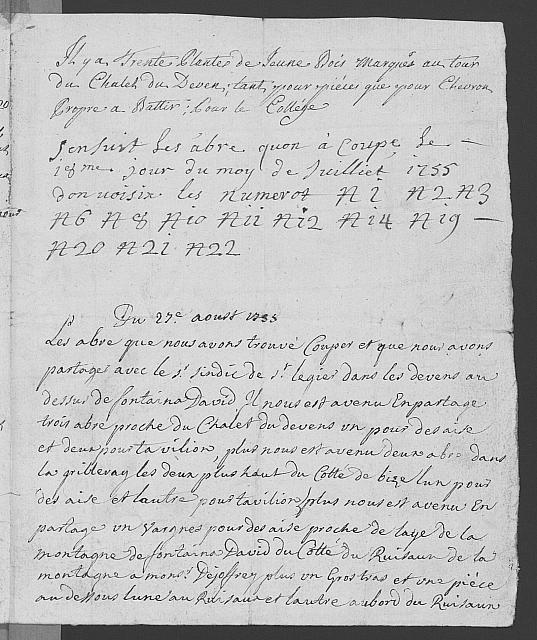 Il y a Trente Plantes de Jeune Bois Marqués au tour
du Chalet du Deven, tant pour piéces que pour Chevron
Propre a Battir, Pour le Collége
Sensuit Les abre quon à Coupé Le —
18me jour du moy de Juilliet 1755
don voisix les numerot # 1 # 2 # 3
# 6 # 8 # 10 # 11 # 12 # 14 # 19 —
# 20 # 21 # 22
Du 27e aoust 1755
Les abre que nous avons trouvé Couper et que nous avons
partages avec le Sr. sindic de St. legier dans les devens au
dessus de fontaina David, Il nous est avenu En partage
trois abre proche du Chalet du devens un pour des aise
et deux pour tavilion, plus nous est avenu deux abre dans
la grillevay les deux plus haut du Cotté de bize lun pour
des aise et lautre pour tavilion plus nous est avenu En
partage un Vargnes pour des aise proche de laye de la
montagne de fontaina David du Cotté du Ruisaux de la
montagne a monsr. Dejoffrey plus un Gros tras et une piéce
au dessous lune au Ruisaux et lautre au bord du Ruisaux